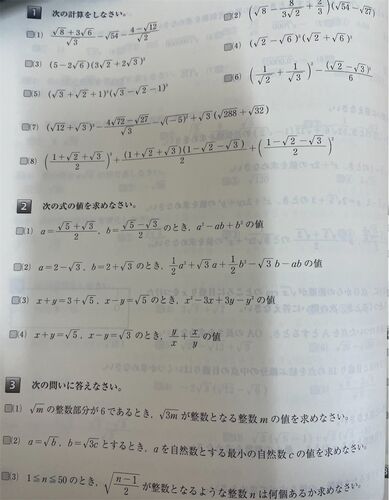 1 次の計算をしなさい。
(1) (√8+3√6)/√3 − √54 − (4−√12)/√2
(2) (√8 − 8/(3√2) + 2/3)(√54−√27)
(3) (5−2√6)(3√2+2√3)²
(4) (√2−√6)²(√2+√6)²
(5) (√3+√2+1)²(√3−√2−1)²
(6) (1/√2 + 1/√3)² − (√2−√3)²/6
(7) (√12+√3)² − (4√72−√27)/√3 − √(−5)² + √3(√288+√32)
(8) ((1+√2+√3)/2)² + (1+√2+√3)(1−√2−√3)/2 + ((1−√2−√3)/2)²
2 次の式の値を求めなさい。
(1) a=(√5+√3)/2, b=(√5−√3)/2 のとき, a²−ab+b² の値
(2) a=2−√3, b=2+√3 のとき, 1/2 a²+√3a+1/2 b²−√3b−ab の値
(3) x+y=3+√5, x−y=√5 のとき, x²−3x+3y−y² の値
(4) x+y=√5, x−y=√3 のとき, y/x + x/y の値
3 次の問いに答えなさい。
(1) √m の整数部分が6であるとき, √3m が整数となる整数 m の値を求めなさい。
(2) a=√b, b=√3c とするとき, a を自然数とする最小の自然数 c の値を求めなさい。
(3) 1≦n≦50 のとき, √((n−1)/2) が整数となるような整数 n は何個あるか求めなさい。